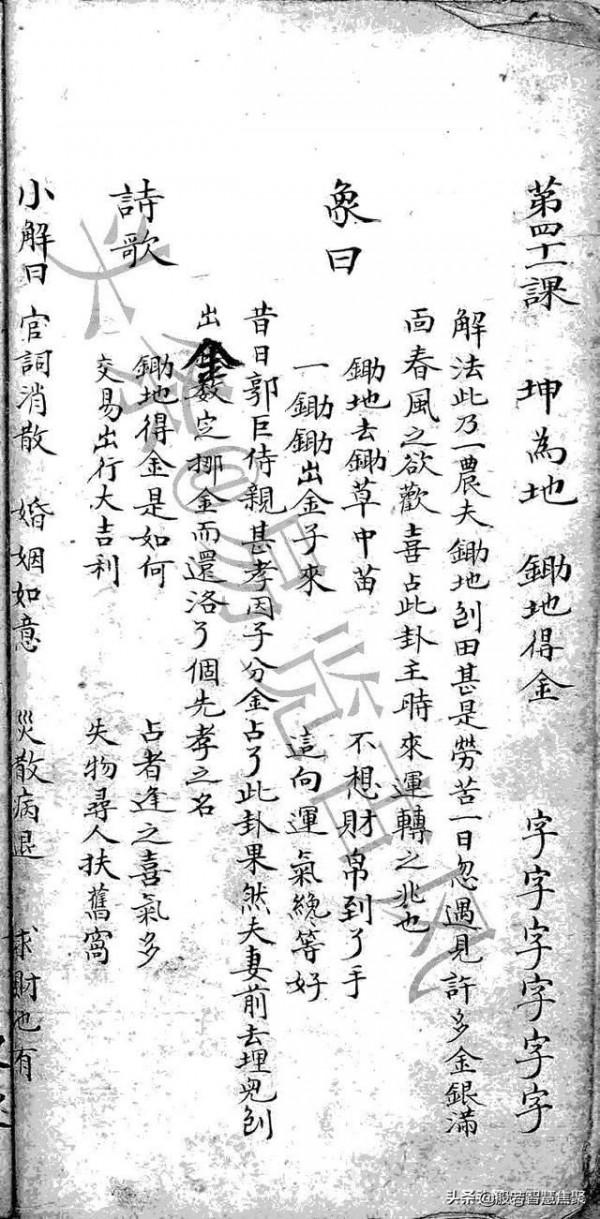 第四十一課 坤為地 鋤地得金 字字字字字字
解法此乃一農夫鋤地刨田甚是勞苦一日忽遇見許多金銀滿
面春風之欲歡喜占此卦主時來運轉之兆也
象曰
鋤地去鋤草中苗 不想財帛到了手
一鋤鋤出金子來 這向運氣纔等好
昔日郭巨侍親甚孝因子分金占了此卦果然夫妻前去埋兒刨
出金數定挪金而還洛了個先孝之名
詩歌
鋤地得金是如何 占者逢之喜氣多
交易出行大吉利 失物尋人扶舊窩
小解曰 官詞消散 婚姻如意 災散病退 求財也有
头条@般若智慧焦聚